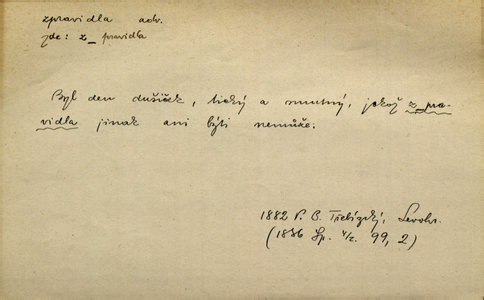 zpravidla adv.
zde: z_pravidla
Byl den dušiček, tichý a smutný, jakož z_pra-
vidla jinak ani býti nemůže.
1882 V. B. Třebízský, Levohr.
(1886 Sp. 4/2. 99, 2)